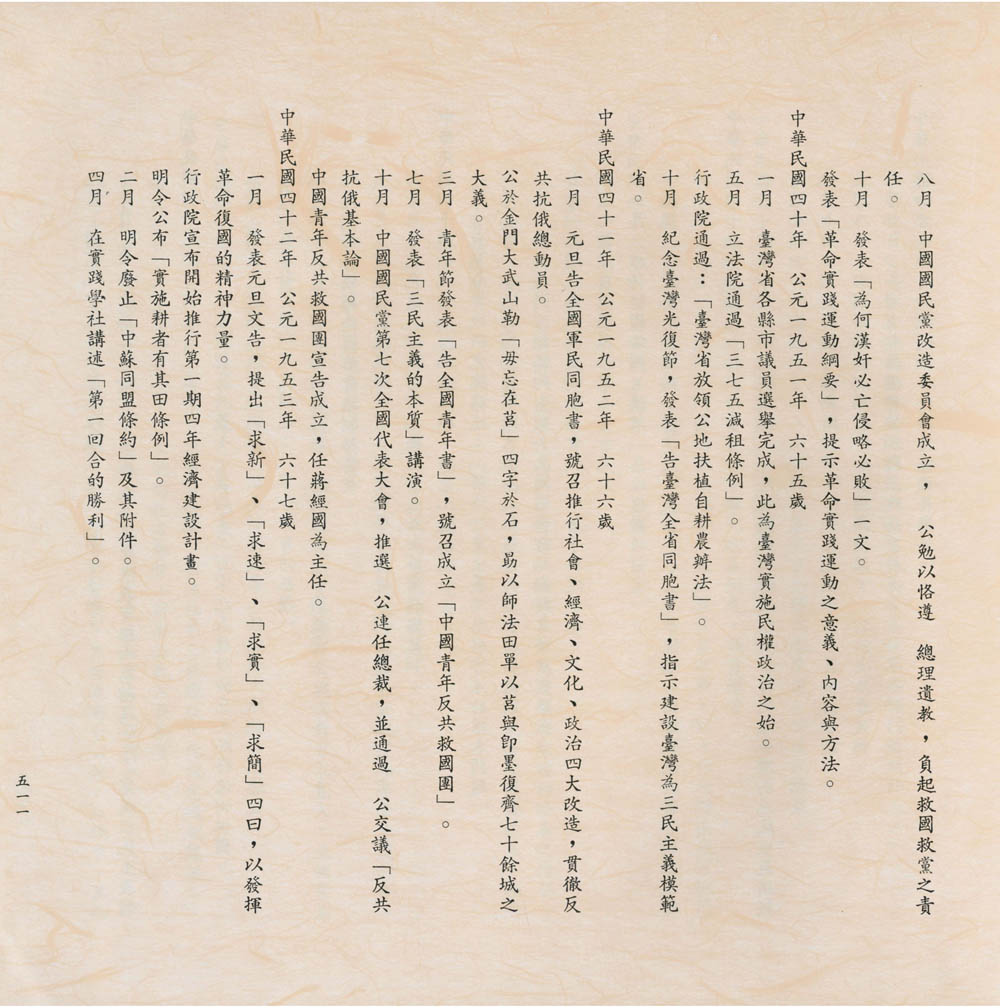 八月　中國國民黨改造委員會成立，　公勉以恪遵　總理遺教，負起救國救黨之責
任。
十月　發表「為何漢奸必亡侵略必敗」一文。
發表「革命實踐運動綱要」，提示革命實踐運動之意義、內容與方法。
中華民國四十年　公元一九五一年　六十五歲
一月　臺灣省各縣市議員選舉完成，此為臺灣實施民權政治之始。
五月　立法院通過「三七五減租條例」。
行政院通過：「臺灣省放領公地扶植自耕農辦法」。
十月　紀念臺灣光復節，發表「告臺灣全省同胞書」，指示建設臺灣為三民主義模範
省。
中華民國四十一年　公元一九五二年　六十六歲
一月　元旦告全國軍民同胞書，號召推行社會、經濟、文化、政治四大改造，貫徹反
共抗俄總動員。
公於金門大武山勒「毋忘在莒」四字於石，勗以師法田單以莒與卽墨復齊七十餘城之
大義。
三月　青年節發表「告全國青年書」，號召成立「中國青年反共救國團」。
七月　發表「三民主義的本質」講演。
十月　中國國民黨第七次全國代表大會，推選　公連任總裁，並通過　公交議「反共
抗俄基本論」。
中國青年反共救國團宣告成立，任蔣經國為主任。
中華民國四十二年　公元一九五三年　六十七歲
一月　發表元旦文告，提出「求新」、「求速」、「求實」、「求簡」四曰，以發揮
革命復國的精神力量。
行政院宣布開始推行第一期四年經濟建設計畫。
明令公布「實施耕者有其田條例」。
二月　明令廢止「中蘇同盟條約」及其附件。
四月　在實踐學社講述「第一回合的勝利」。
五一一